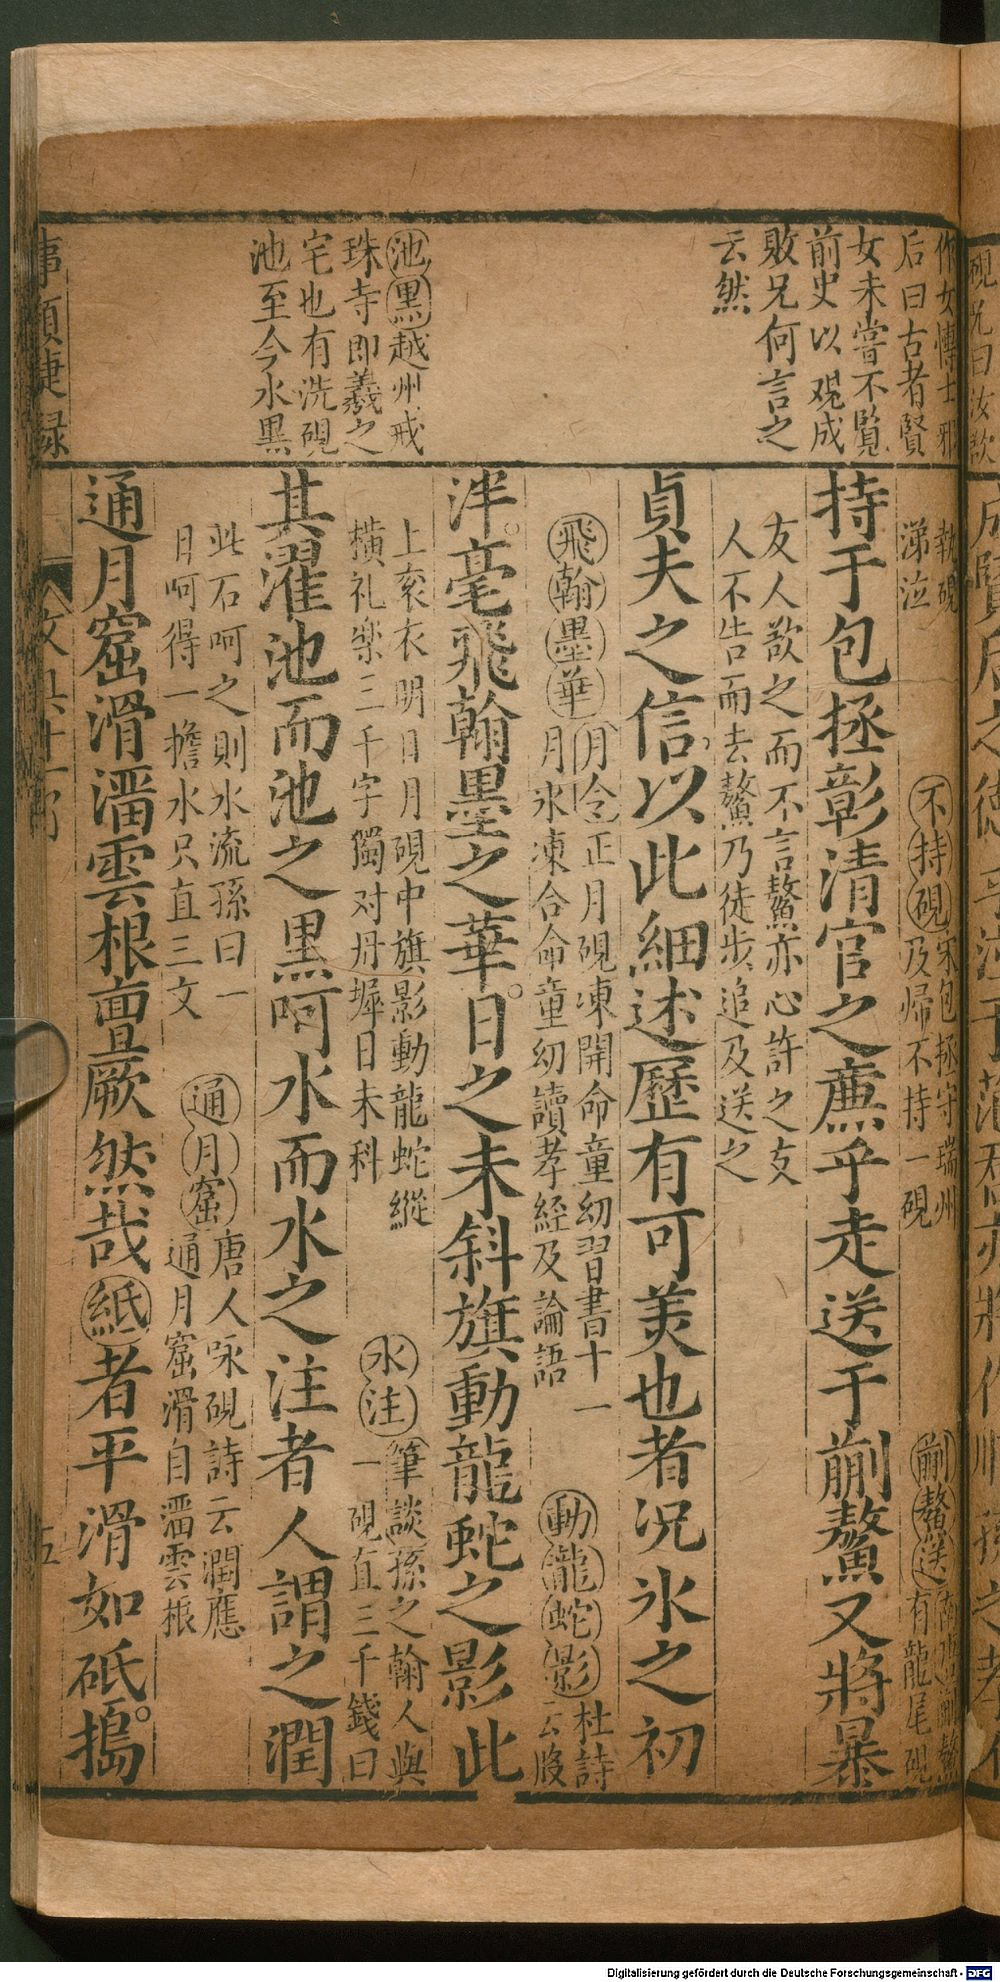 作女博士邪
后曰古者賢
女未嘗不覧
前史以观成
敗兄何言之
云然
池黒越州戒
珠寺即羲之
宅也有洗硯
池至今水黒
執硯
涕泣
不持硯宋包拯守瑞州
及帰不持一硯
蒯鰲送
有龍尾硯
持于包拯彰清官之亷乎走送于蒯鰲又將暴
友人欲之而不言鰲亦心許之友
人不告而去鰲乃徒步追及送之
貞夫之信以此細述歷有可羙也者况氷之初
飛翰墨華月令正月硯凍開命童幼習書十一
月氷凍合命童幼讀孝經及論語
動龍蛇影杜詩
云
泮毫飛翰墨之華日之未斜旗動龍蛇之影此
上衮衣明日月硯中旗影動龍蛇縱
横礼楽三千字獨对丹墀日未科
水注筆談孫之翰人與
一硯直三千錢曰
其濯池而池之黒呵水而水之注者人謂之潤
此石呵之則水流孫曰一
日呵得一擔水只直三文
通月窟唐人咏硯詩云潤應
通月窟滑自湽雲根
通月窟滑湽雲根亶厥然哉紙者平滑如砥搗
事類捷録
五
Digitalisierung gefördert durch die Deutsche Forschungsgemeinschaft - DFG